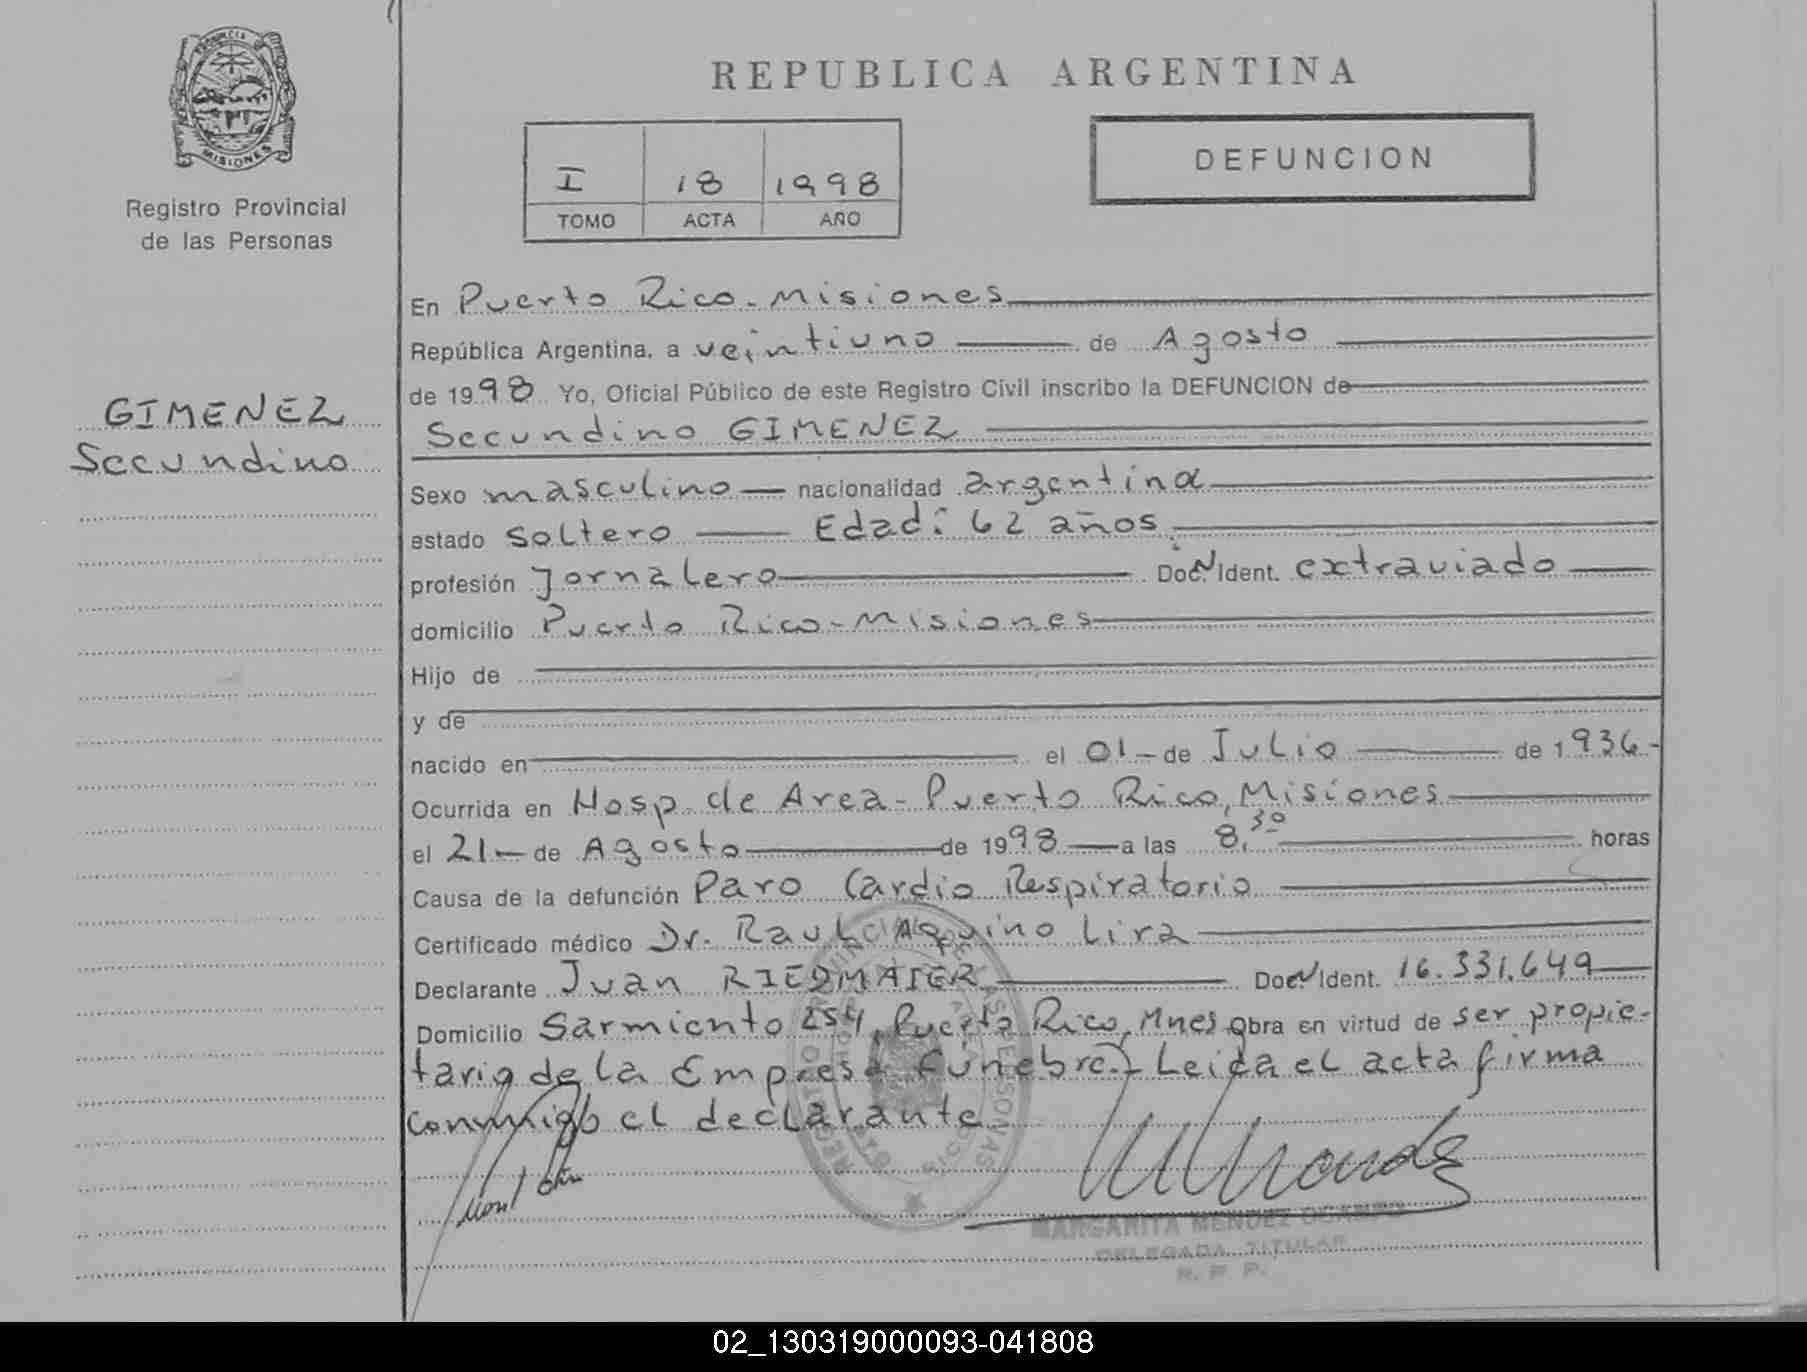 PROVINCIA DE
MISIONES
Registro Provincial
de las Personas
GIMENEZ
Secundino
REPUBLICA ARGENTINA
I 18 1998
TOMO ACTA AÑO
DEFUNCION
En Puerto Rico - Misiones
República Argentina, a veintiuno de Agosto
de 1998 Yo, Oficial Público de este Registro Civil inscribo la DEFUNCION de
Secundino GIMENEZ
Sexo masculino nacionalidad argentina
estado soltero Edad: 62 años
profesión Jornalero Doc. N Ident. extraviado
domicilio Puerto Rico - Misiones
Hijo de
y de
nacido en el 01 - de Julio de 1936 -
Ocurrida en Hosp. de Area - Puerto Rico, Misiones
el 21 - de Agosto de 1998 a las 8,30 horas
Causa de la defunción Paro Cardio Respiratorio
Certificado médico Dr. Raul Aquino Lira
Declarante Juan RIEDMAIER Doc. N Ident. 16.331.649
Domicilio Sarmiento 254, Puerto Rico, Mnes Obra en virtud de ser propie-
tario de la Empresa fúnebre.- Leida el acta firma
conmigo el declarante
REGISTRO PROVINCIAL DE LAS PERSONAS
MARGARITA MENDEZ OCAMPO
DELEGADA TITULAR
R. P. P.
02_130319000093-041808